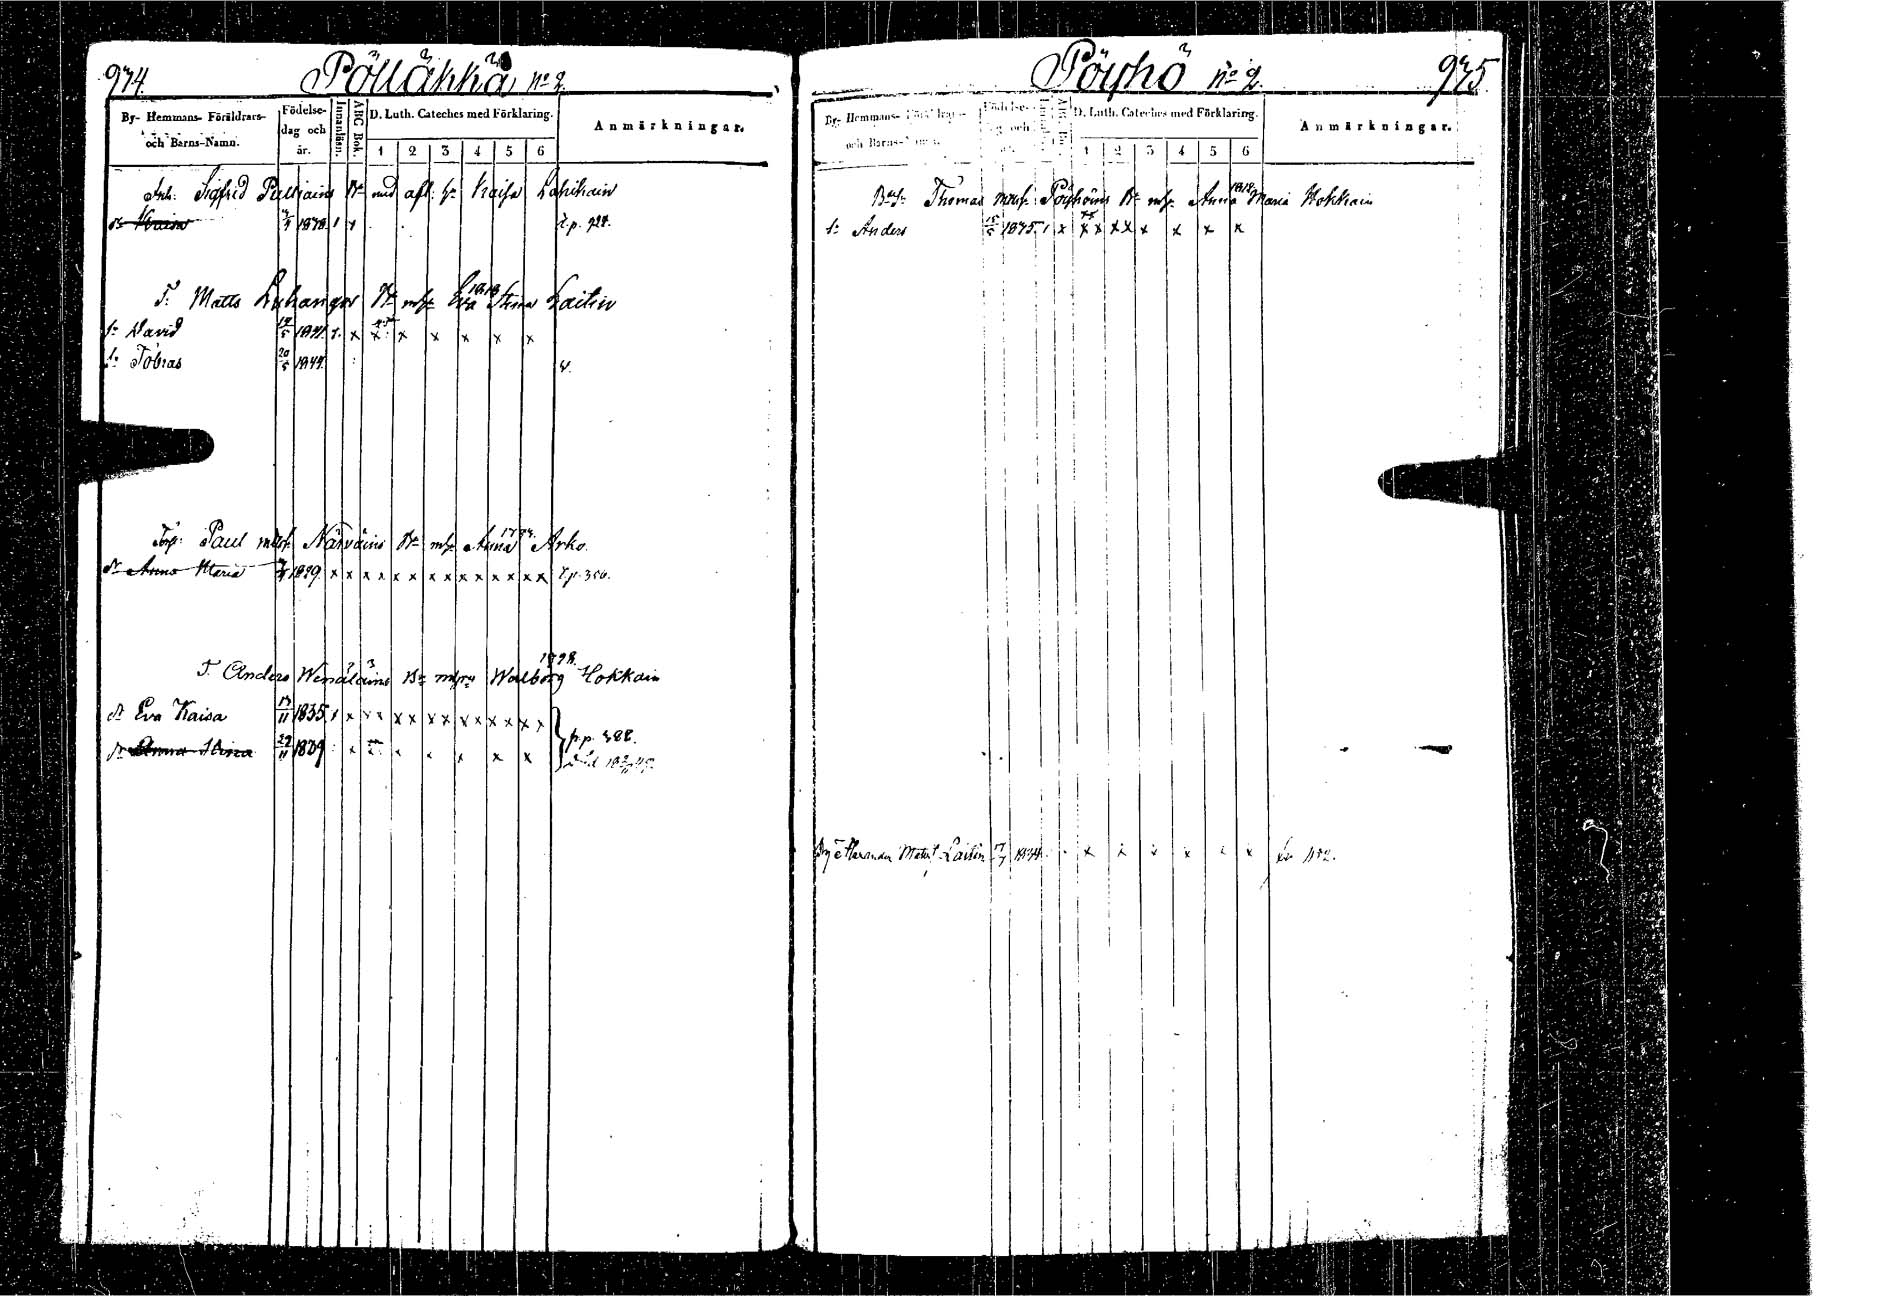 974.
Pöllähkä no 2.
By- Hemmans- Föräldrars- och Barns-Namn.
Födelse-dag och år.
Innanläsn.
ABC Bok.
D. Luth. Cateches med Förklaring.
1 2 3 4 5 6
Anmärkningar.
Inh: Sigfrid Pulliains Br med afl. h. Kaisa Lahikain
dr Kaisa 1838 1 x t.p. 928.
T. Matts Luhanger Br mh. Eva Stina Laitin
1818
s. David 1841. x x x x x x x
s. Tobias 20/5 1844.
Torp. Paul Närväins Br mh. Anna Arko.
dr Anna Maria 1829. x x x x x x x x x x x x x x t.p. 350.
T. Anders Wenäläins Br Walborg Hokkain
dr Eva Kaisa 13/11 1835. 1 x x x x x x x x x x x x x
p.p. 388.
dr Anna Stina 22/11 1839 x x x x x x
Död
Pöyhö no 2.
975
By- Hemmans- Föräldrars- och Barns-Namn.
Födelse-dag och år.
ABC Bok.
D. Luth. Cateches med Förklaring.
1 2 3 4 5 6
Anmärkningar.
Thomas Pöyhöins Br mh. Anna Maria Hokkain
1818
s. Anders 15/5 1835. 1 x x x x x x x x x
Alexander Laitin x x x x x x